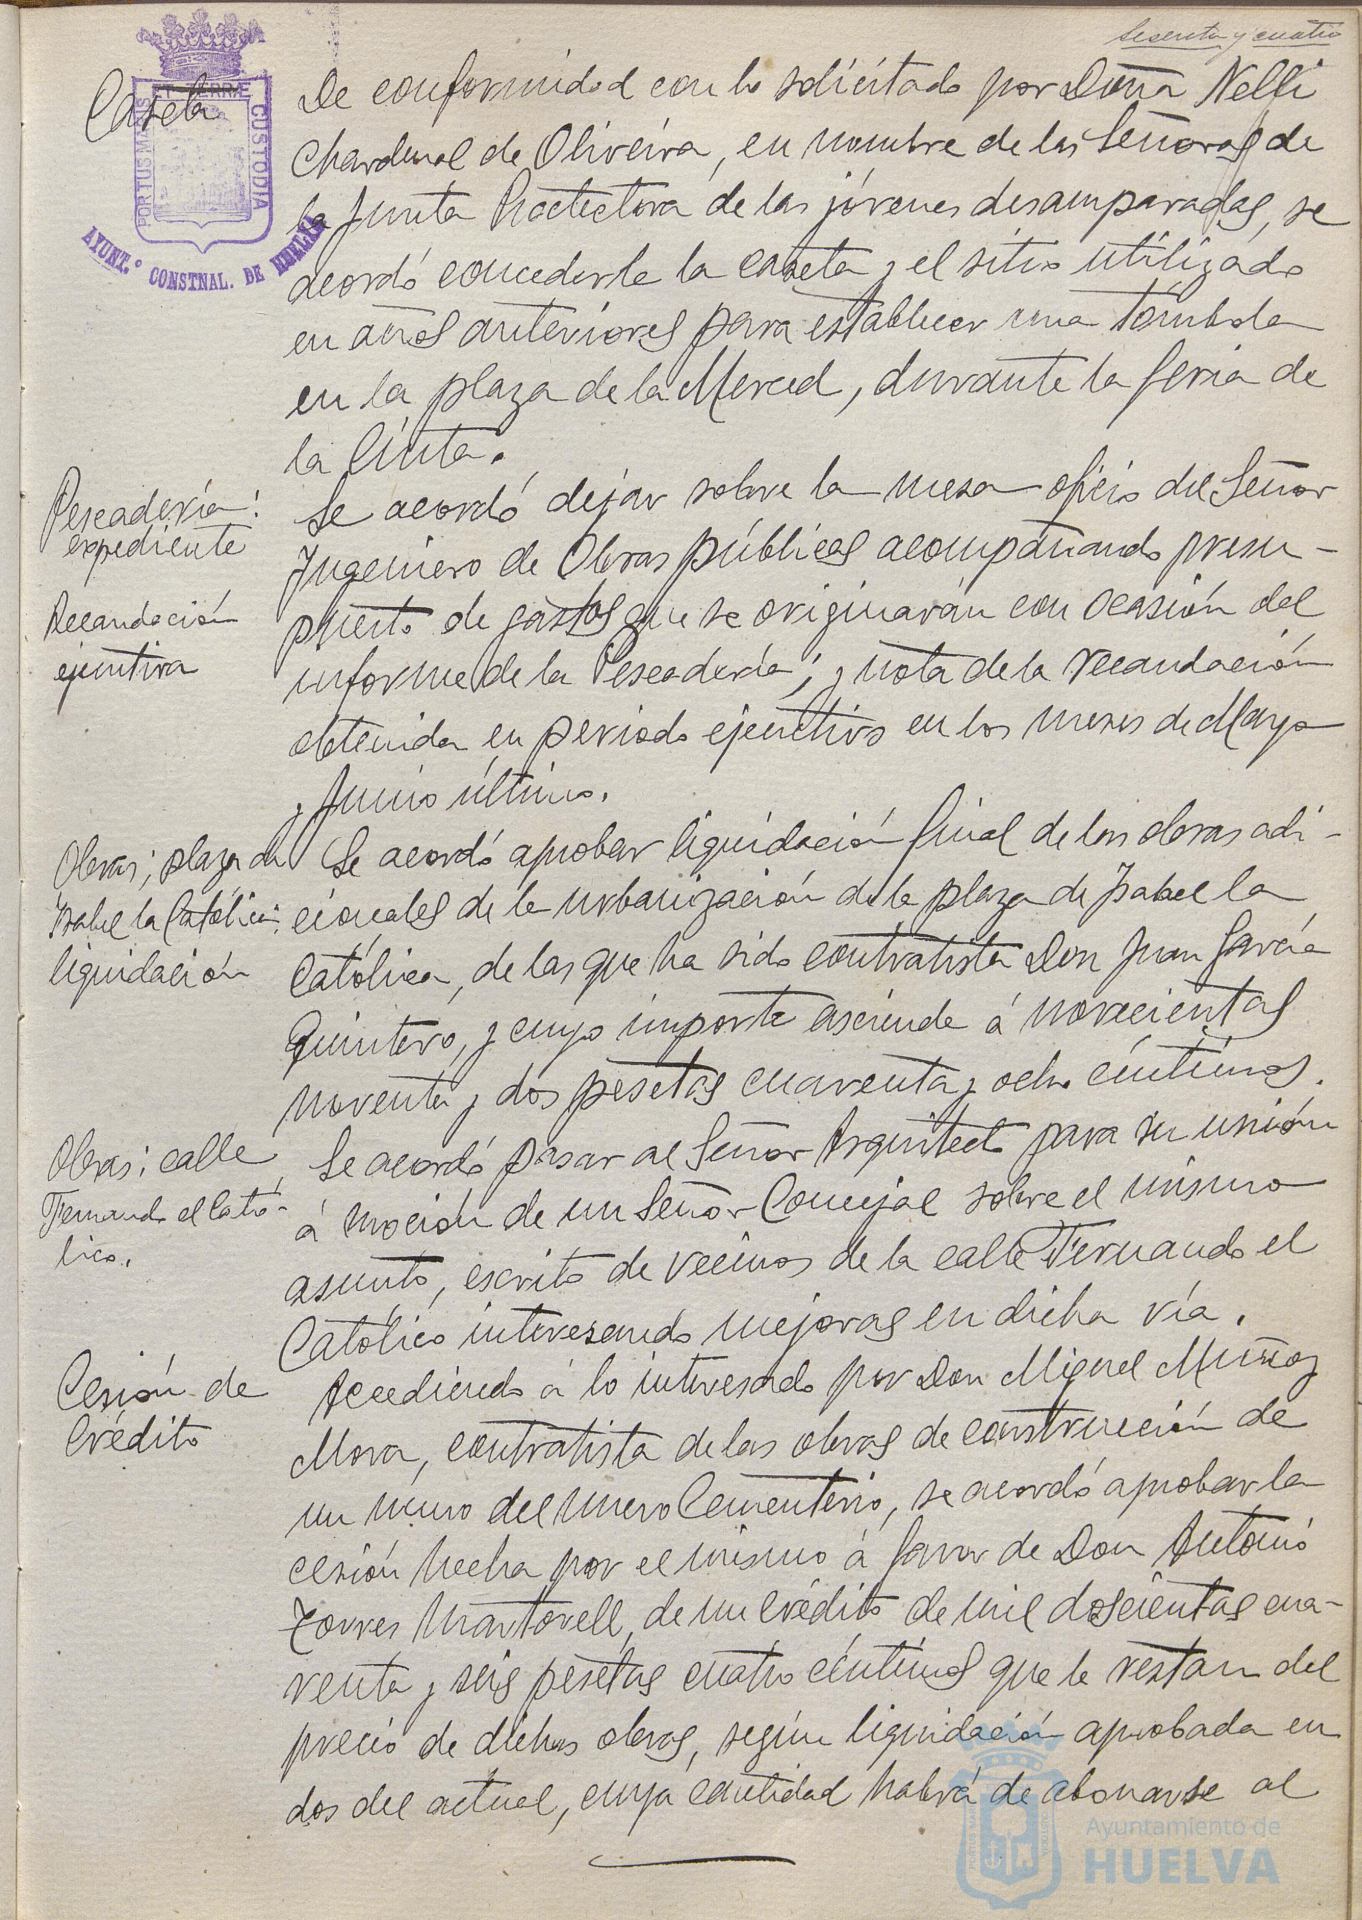 Sesenta y cuatro
Caseta
ET TERRÆ
PORTUS MARIS
CUSTODIA
AYUNT.º CONSTNAL. DE HUELVA
De conformidad con lo solicitado por Doña Nelli
Chardenal de Oliveira, en nombre de las Señoras de
la Junta Protectora de las jóvenes desamparadas, se
acordó concederle la caseta y el sitio utilizado
en años anteriores para establecer una tómbola
en la plaza de la Merced, durante la feria de
la Cinta.
Pescadería:
expediente
Recaudación
ejecutiva
Se acordó dejar sobre la mesa oficio del Señor
Ingeniero de Obras públicas acompañando presu-
puesto de gastos que se originarán con ocasión del
informe de la Pescadería; y nota de la recaudación
obtenida en periodo ejecutivo en los meses de Mayo
y Junio último.
Obras; plaza de
Isabel la Católica:
liquidación
Se acordó aprobar liquidación final de las obras adi-
cionales de la urbanización de la plaza de Isabel la
Católica, de las que ha sido contratista Don Juan García
Quintero, y cuyo importe asciende á novecientas
noventa y dos pesetas cuarenta y ocho céntimos.
Obras: calle
Fernando el Cató-
lico.
Se acordó pasar al Señor Arquitecto para su unión
á moción de un Señor Concejal sobre el mismo
asunto, escrito de vecinos de la calle Fernando el
Católico interesando mejoras en dicha vía.
Cesión de
Crédito
Accediendo á lo interesado por Don Miguel Muñoz
Mora, contratista de las obras de construcción de
un muro del nuevo Cementerio, se acordó aprobar la
cesión hecha por el mismo á favor de Don Antonio
Torres Martorell, de un crédito de mil doscientas cua-
renta y seis pesetas cuatro céntimos que le restan del
precio de dichas obras, según liquidación aprobada en
dos del actual, cuya cantidad habrá de abonarse al
Ayuntamiento de
HUELVA